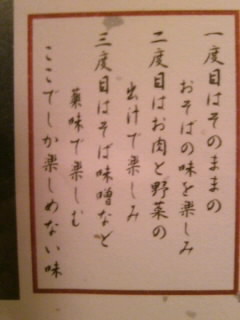 一度目はそのままの
おそばの味を楽しみ
二度目はお肉と野菜の
出汁で楽しみ
三度目はそば味噌など
薬味で楽しむ
ここでしか楽しめない味